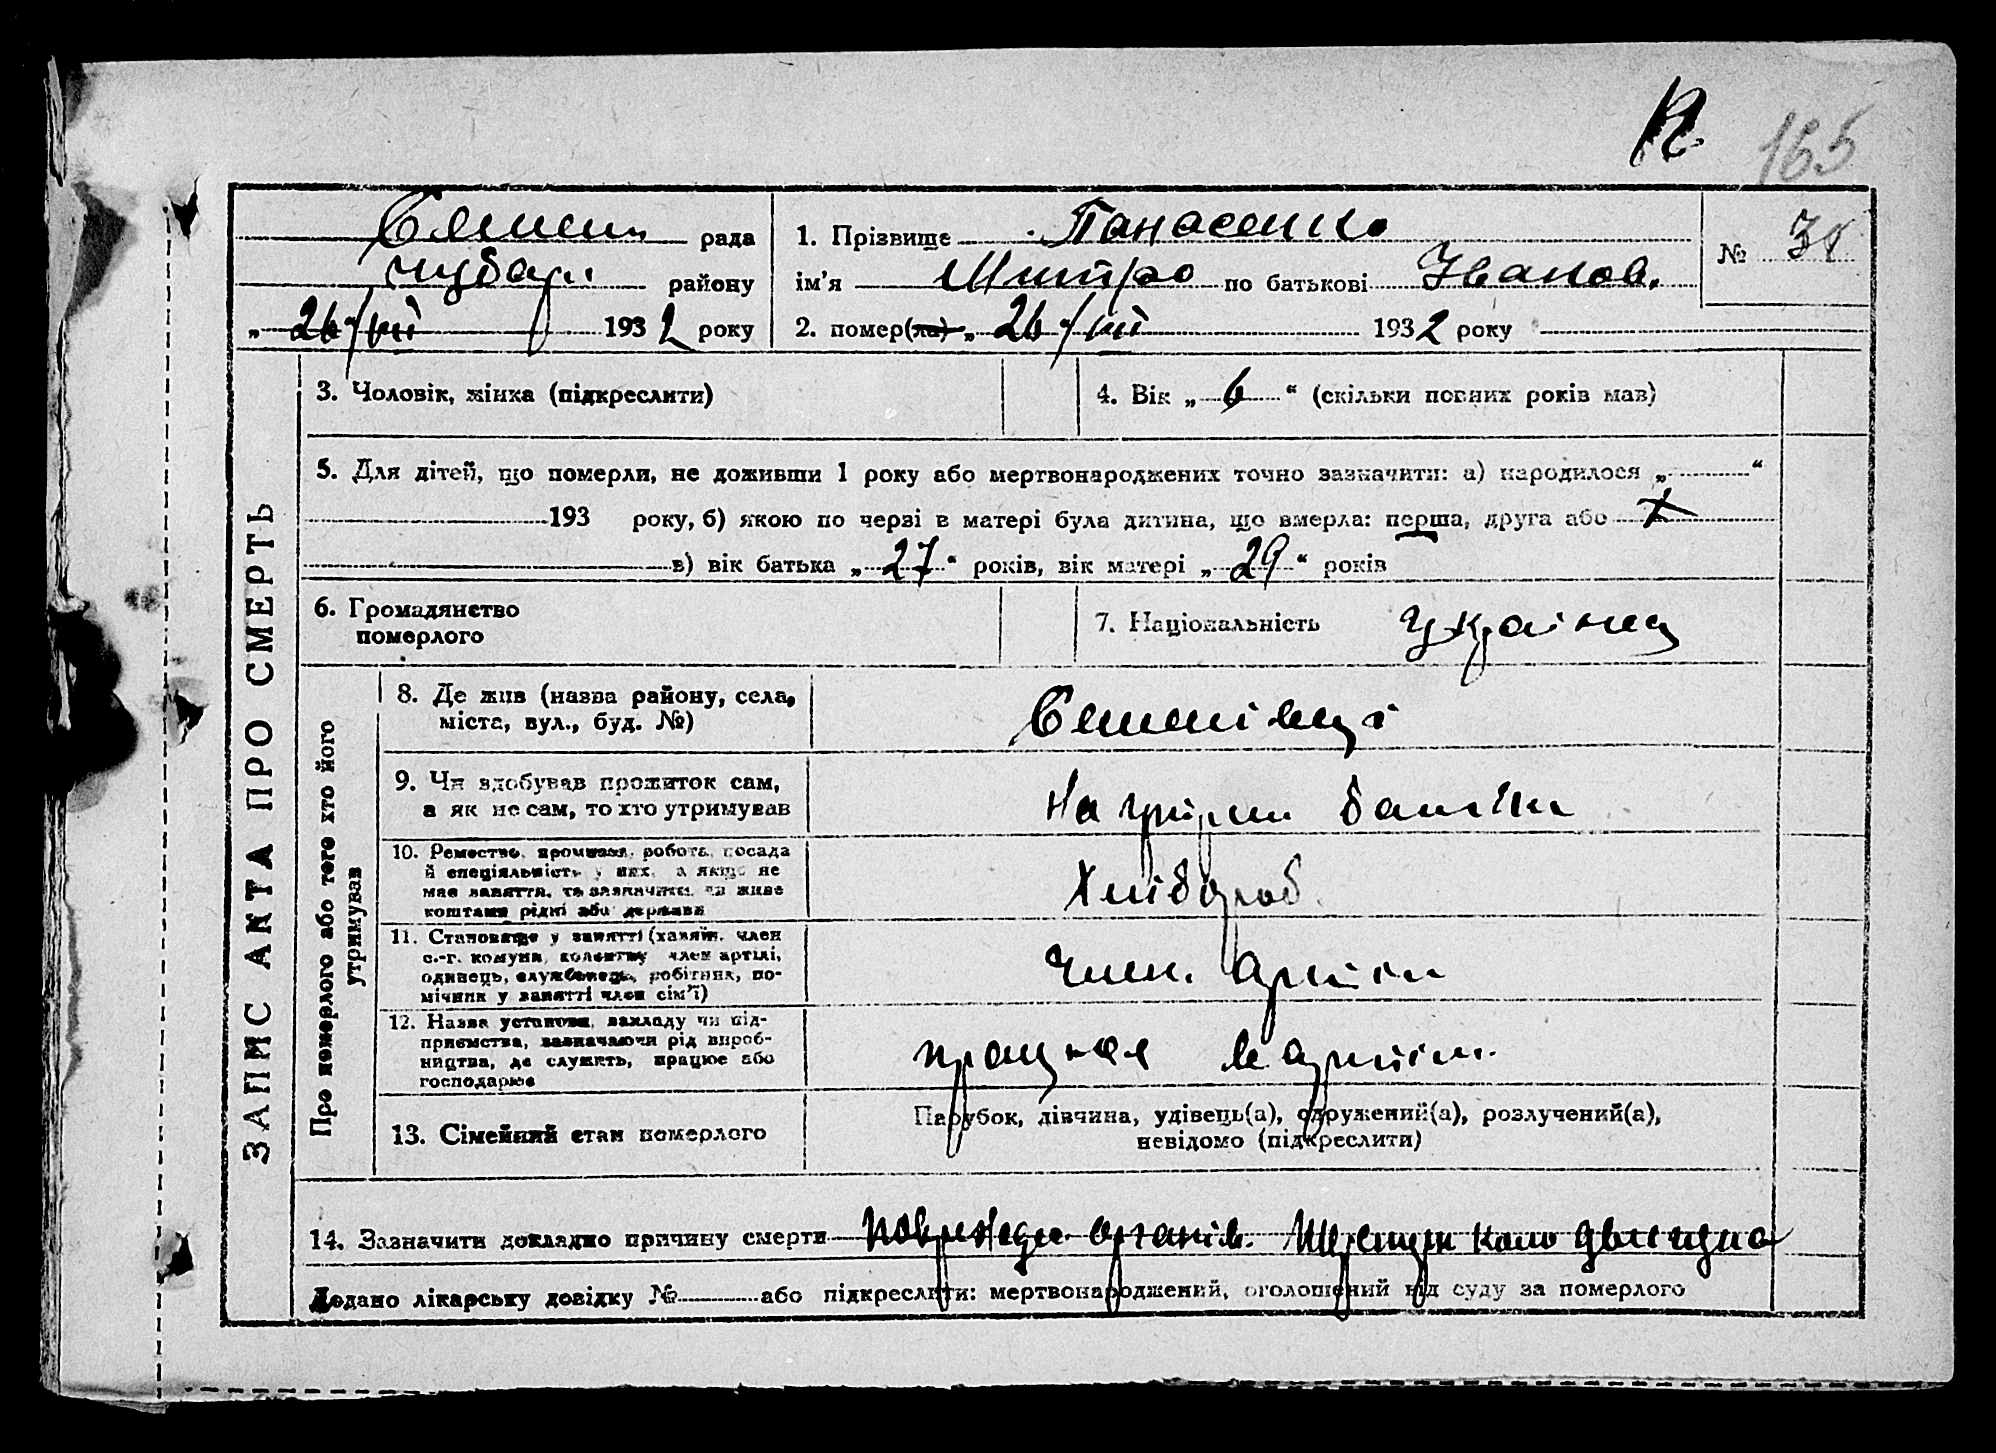 165
рада
1. Прізвище Панасенко
№ 38
району
ім'я Митро по батькові Іванов.
„ 26/VII 1932 року
2. помер(ла) „ 26/VII 1932 року
ЗАПИС АКТА ПРО СМЕРТЬ
3. Чоловік, жінка (підкреслити)
4. Вік „ 6 “ (скільки повних років мав)
5. Для дітей, що померли, не доживши 1 року або мертвонароджених точно зазначити: а) народилося „ “
193 року, б) якою по черзі в матері була дитина, що вмерла: перша, друга або
в) вік батька „ 27 “ років, вік матері „ 29 “ років
6. Громадянство
померлого
7. Національність Українец
Про померлого або того хто його
утримував
8. Де жив (назва району, села,
міста, вул., буд. №)
9. Чи здобував прожиток сам,
а як не сам, то хто утримував
На утрим батьки
10. Ремество, промисел, робота, посада
й спеціяльність у них, а якщо не
має заняття, то зазначити, чи живе
коштами рідні або держави
Хлібороб
11. Становище у занятті (хазяїн, член
с.-г. комуни, колективу член артілі,
одинець, службовець, робітник, по-
мічник у занятті член сім'ї)
Член. Артіли
12. Назва установи, закладу чи під-
приємства, зазначаючи рід вироб-
ництва, де служить, працює або
господарює
працюе в артіли.
13. Сімейний стан померлого
Парубок, дівчина, удівець(а), одружений(а), розлучений(а),
невідомо (підкреслити)
14. Зазначити докладно причину смерти
Додано лікарську довідку № або підкреслити: мертвонароджений, оголошений від суду за померлого